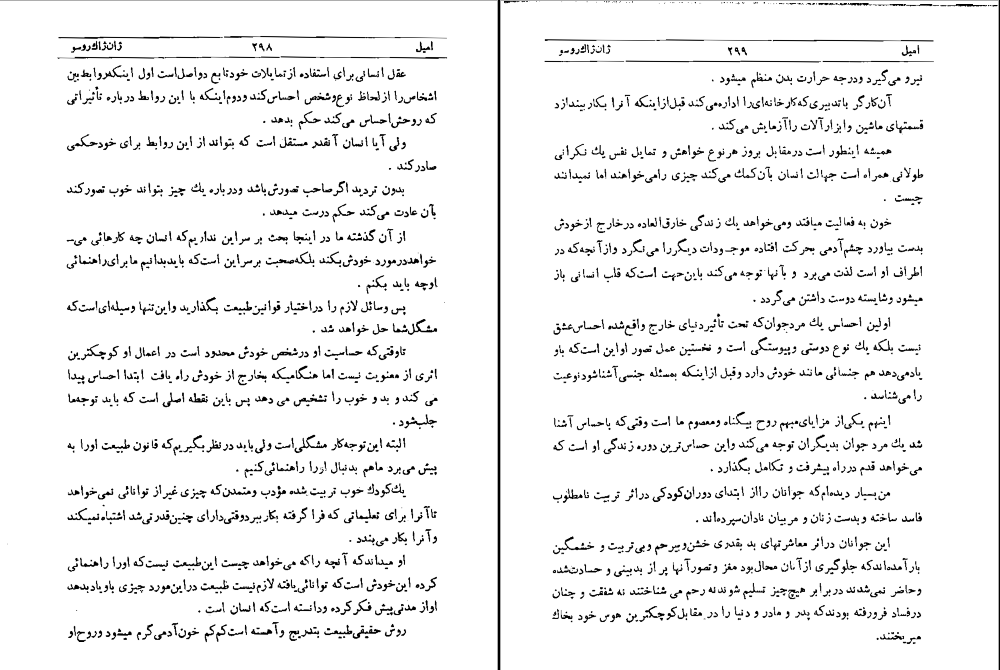 ژان‌ژاك‌روسو ۲۹۸ امیل
عقل انسانی برای استفاده از تمایلات خود تابع دو اصل است اول اینکه روابط بین
اشخاص را از لحاظ نوع و شخص احساس کند و دوم اینکه با این روابط درباره تأثیراتی
که روحش احساس می‌کند حکم بدهد .
ولی آیا انسان آنقدر مستقل است که بتواند از این روابط برای خود حکمی
صادر کند .
بدون تردید اگر صاحب تصورش باشد و درباره یك چیز بتواند خوب تصور کند
بآن عادت می‌کند حکم درست میدهد .
از آن گذشته ما در اینجا بحث بر سر این نداریم که انسان چه کارهائی می‌ـ
خواهد در مورد خودش بکند بلکه صحبت بر سر این است که باید بدانیم ما برای راهنمائی
او چه باید بکنم .
پس وسائل لازم را در اختیار قوانین طبیعت بگذارید و این تنها وسیله‌ای است که
مشگل شما حل خواهد شد .
تا وقتی که حساسیت او در شخص خودش محدود است در اعمال او کوچکترین
اثری از معنویت نیست اما هنگامیکه بخارج از خودش راه یافت ابتدا احساس پیدا
می کند و بد و خوب را تشخیص می دهد پس باین نقطه اصلی است که باید توجه‌ما
جلب شود .
البته این توجه کار مشگلی است ولی باید در نظر بگیریم که قانون طبیعت اورا به
پیش می‌برد ماهم بدنبال اورا راهنمائی کنیم .
یك کودك خوب تربیت شده مؤدب و متمدن که چیزی غیر از توانائی نمی‌خواهد
تا آنرا برای تعلیماتی که فرا گرفته بکار ببرد وقتی دارای چنین قدرتی شد اشتباه نمیکند
و آنرا بکار می‌بندد .
او میداند که آنچه را که می‌خواهد چیست این طبیعت نیست که اورا راهنمائی
کرده این خودش است که توانائی یافته لازم نیست طبیعت در این مورد چیزی باو یاد بدهد
او از مدتی پیش فکر کرده و دانسته است که انسان است .
روش حقیقی طبیعت بتدریج و آهسته است کم کم خون آدمی گرم میشود و روح او
ژان‌ژاك‌روسو ۲۹۹ امیل
نیرو می‌گیرد و درجه حرارت بدن منظم میشود .
آن کارگر با تدبیری که کارخانه‌ای را اداره می‌کند قبل از اینکه آنرا بکار بیندازد
قسمتهای ماشین و ابزار آلات را آزمایش می‌کند .
همیشه اینطور است در مقابل بروز هر نوع خواهش و تمایل نفس یك نگرانی
طولانی همراه است جهالت انسان بآن کمك می‌کند چیزی را می‌خواهند اما نمیدانند
چیست .
خون به فعالیت میافتد و می‌خواهد یك زندگی خارق العاده در خارج از خودش
بدست بیاورد چشم آدمی بحرکت افتاده موجودات دیگر را می‌نگرد و از آنچه که در
اطراف او است لذت می‌برد و بآنها توجه می‌کند باین جهت است که قلب انسانی باز
میشود و شایسته دوست داشتن می‌گردد .
اولین احساس یك مرد جوان که تحت تأثیر دنیای خارج واقع شده احساس عشق
نیست بلکه یك نوع دوستی و پیوستگی است و نخستین عمل تصور او این است که باو
یاد می‌دهد هم جنسانی مانند خودش دارد و قبل از اینکه بمسئله جنسی آشنا شود نوعیت
را می‌شناسد .
اینهم یکی از مزایای مبهم روح بیگناه و معصوم ما است وقتی که باحساس آشنا
شد یك مرد جوان بدیگران توجه می‌کند و این حساس‌ترین دوره زندگی او است که
می‌خواهد قدم در راه پیشرفت و تکامل بگذارد .
من بسیار دیده‌ام که جوانان را از ابتدای دوران کودکی در اثر تربیت نامطلوب
فاسد ساخته و بدست زنان و مربیان نادان سپرده‌اند .
این جوانان در اثر معاشرتهای بد بقدری خشن و بیرحم و بی‌تربیت و خشمگین
بار آمده‌اند که جلوگیری از آنان محال بود مغز و تصور آنها پر از بدبینی و حسادت شده
و حاضر نمی‌شدند در برابر هیچ چیز تسلیم شوند نه رحم می شناختند نه شفقت و چنان
در فساد فرو رفته بودند که پدر و مادر و دنیا را در مقابل کوچکترین هوس خود بخاك
میریختند.